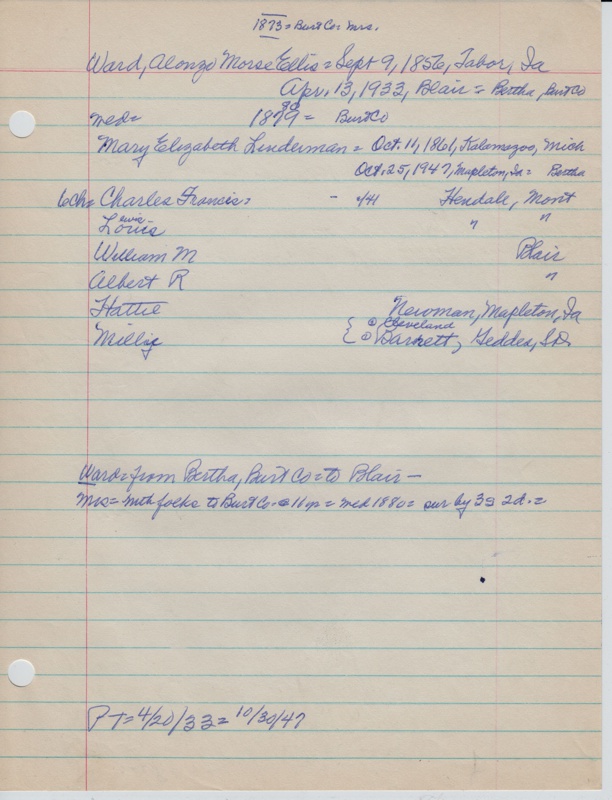 1873 = Burt Co = Mrs.
Ward, Alonzo Morse Ellis = Sept 9, 1856, Tabor, Ia
Apr. 13, 1933, Blair = Bertha, Burt Co
80
med= 1879 = Burt Co
Mary Elizabeth Linderman = Oct. 11, 1861, Kalamazoo, Mich
Oct. 25, 1947, Mapleton, Ia = Bertha
6ch= Charles Francis = - Hendale, Mont
Lewis
Louis " "
William M Blair
Albert R "
Hattie Newman, Mapleton, Ia
Cleveland
Millie Barnett, Geddes, S.D.
Ward = from Bertha, Burt Co = to Blair -
Mrs = with folks to Burt Co = @ 11 yr = med 1880 = sur by 3s 2d. =
PT = 4/20/33 = 10/30/47